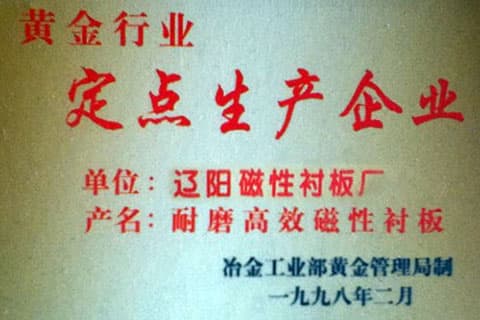 黄金行业
定点生产企业
单位：辽阳磁性衬板厂
产名：耐磨高效磁性衬板
冶金工业部黄金管理局制
一九九八年二月